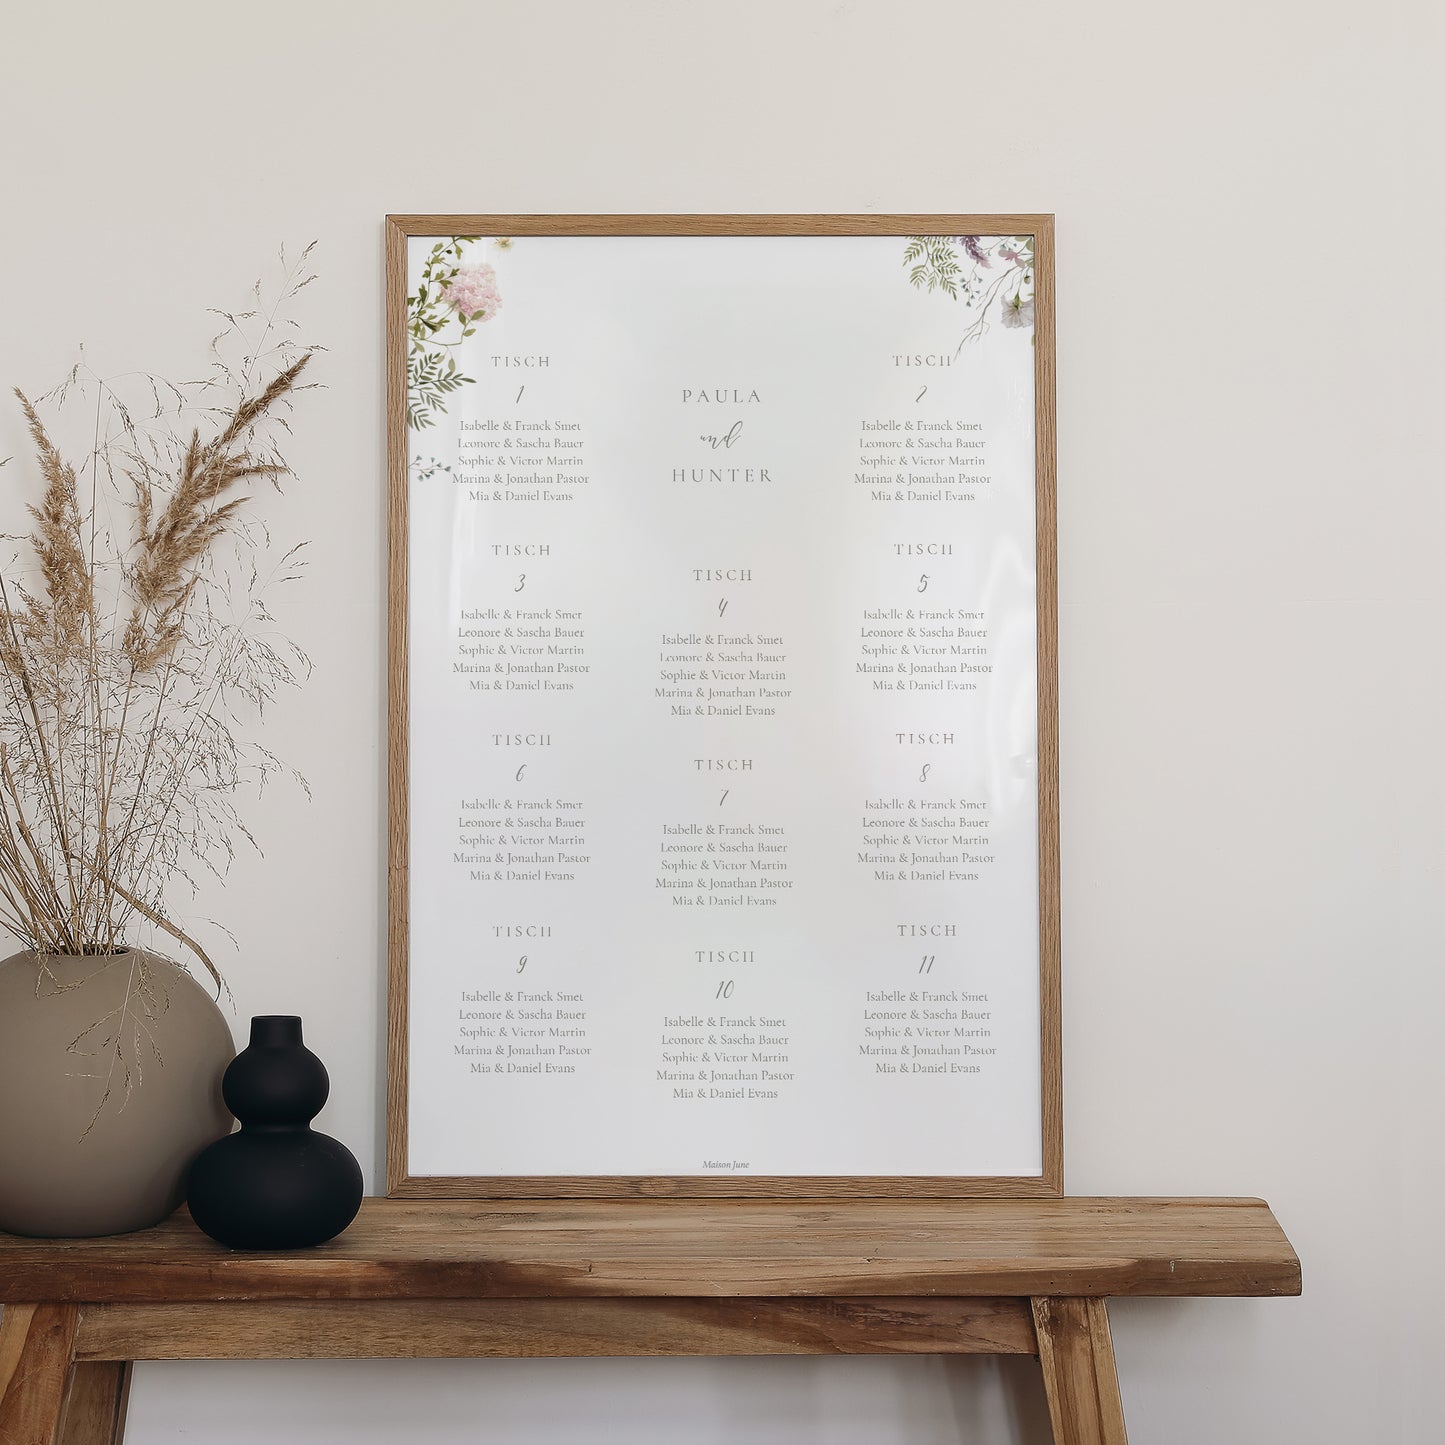 PAULA
und
HUNTER
TISCH
1
Isabelle & Franck Smet
Leonore & Sascha Bauer
Sophie & Victor Martin
Marina & Jonathan Pastor
Mia & Daniel Evans
TISCH
2
Isabelle & Franck Smet
Leonore & Sascha Bauer
Sophie & Victor Martin
Marina & Jonathan Pastor
Mia & Daniel Evans
TISCH
3
Isabelle & Franck Smet
Leonore & Sascha Bauer
Sophie & Victor Martin
Marina & Jonathan Pastor
Mia & Daniel Evans
TISCH
4
Isabelle & Franck Smet
Leonore & Sascha Bauer
Sophie & Victor Martin
Marina & Jonathan Pastor
Mia & Daniel Evans
TISCH
5
Isabelle & Franck Smet
Leonore & Sascha Bauer
Sophie & Victor Martin
Marina & Jonathan Pastor
Mia & Daniel Evans
TISCH
6
Isabelle & Franck Smet
Leonore & Sascha Bauer
Sophie & Victor Martin
Marina & Jonathan Pastor
Mia & Daniel Evans
TISCH
7
Isabelle & Franck Smet
Leonore & Sascha Bauer
Sophie & Victor Martin
Marina & Jonathan Pastor
Mia & Daniel Evans
TISCH
8
Isabelle & Franck Smet
Leonore & Sascha Bauer
Sophie & Victor Martin
Marina & Jonathan Pastor
Mia & Daniel Evans
TISCH
9
Isabelle & Franck Smet
Leonore & Sascha Bauer
Sophie & Victor Martin
Marina & Jonathan Pastor
Mia & Daniel Evans
TISCH
10
Isabelle & Franck Smet
Leonore & Sascha Bauer
Sophie & Victor Martin
Marina & Jonathan Pastor
Mia & Daniel Evans
TISCH
11
Isabelle & Franck Smet
Leonore & Sascha Bauer
Sophie & Victor Martin
Marina & Jonathan Pastor
Mia & Daniel Evans
Maison June